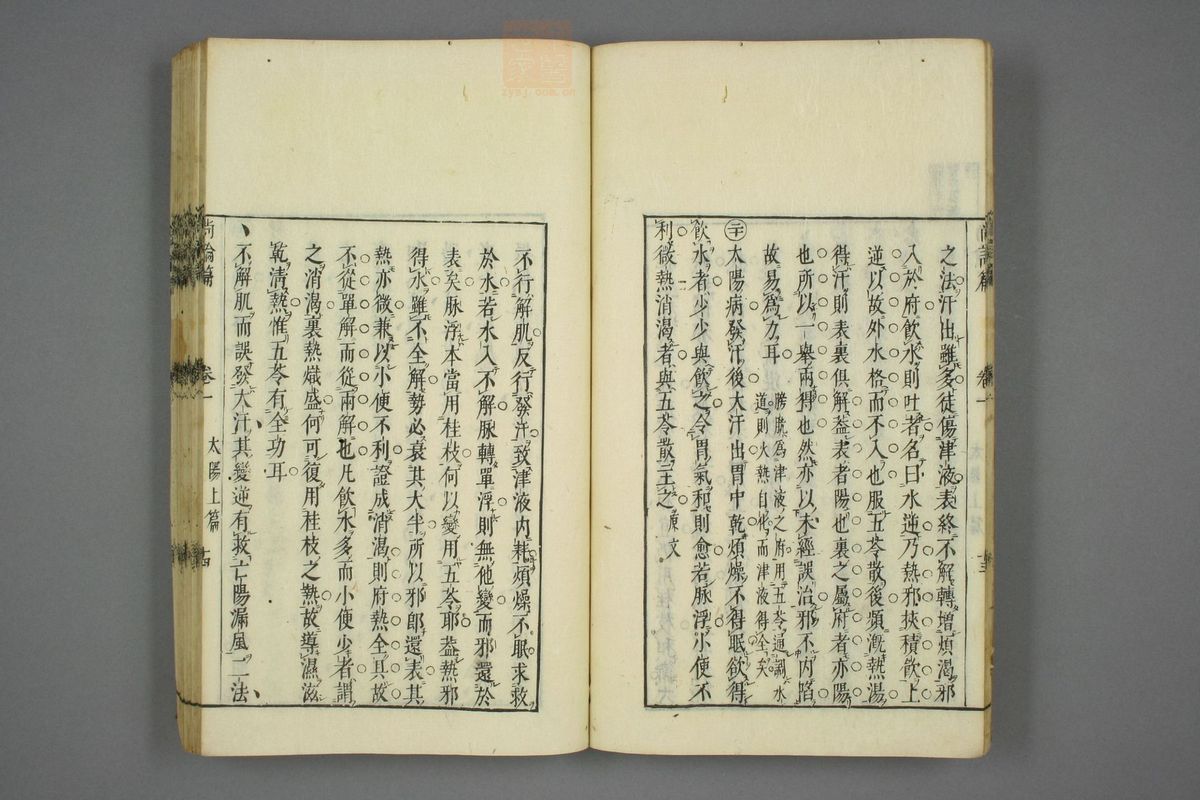 之法汗出雖多徒傷津液表終不解轉增煩渴邪
入於府飲水則吐者名曰水逆乃熱邪挾積飲上
逆以故外水格而不入也服五苓散後頻漑熱湯
得汗則表裏俱解葢表者陽也裏之屬府者亦陽
也所以一舉兩得也然亦以未經誤治邪不内陷
故易爲力耳
膀胱爲津液之府用五苓通調水
道則火熱自化而津液得全矣
二十
太陽病發汗後大汗出胃中乾煩燥不得眠欲得
飲水者少少與飲之令胃氣和則愈若脉浮小便不
利微熱消渴者與五苓散主之原文
尚論篇
卷一
太陽上篇
十三
不行解肌反行發汗致津液内耗煩燥不眠求救
於水若水入不解脉轉單浮則無他變而邪還於
表矣脉浮本當用桂枝何以變用五苓耶葢熱邪
得水雖不全解勢必衰其大半所以邪郎還表其
熱亦微兼以小便不利證成消渴則府熱全具故
不從單解而從兩解也凡飲水多而小便少者謂
之消渴裏熱熾盛何可復用桂枝之熱故導濕滋
乾清熱惟五苓有全功耳
不解肌而誤發大汗其變逆有救亡陽漏風二法
尚論篇
卷一
太陽上篇
十四